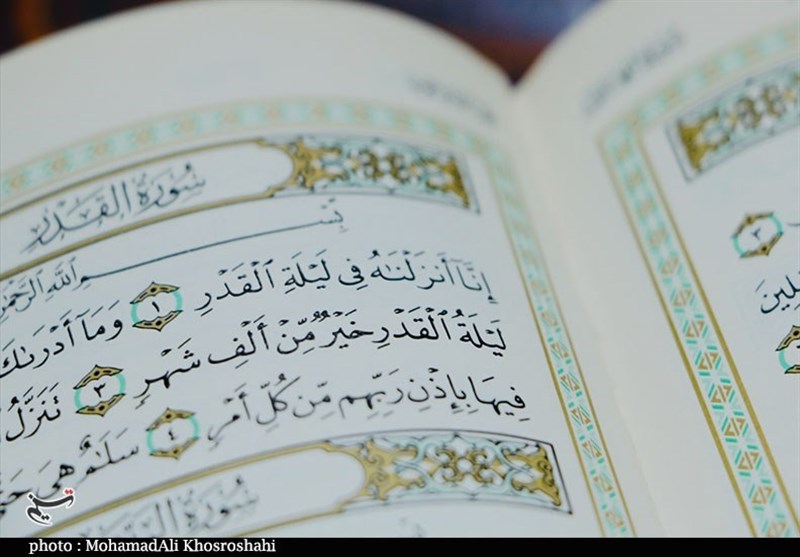 سُورَةُ القَدۡرِ
بِسۡمِ ٱللَّهِ ٱلرَّحۡمَٰنِ
إِنَّآ أَنزَلۡنَٰهُ فِي لَيۡلَةِ ٱلۡقَدۡرِ ١ وَمَآ أَدۡرَىٰكَ
لَيۡلَةُ ٱلۡقَدۡرِ خَيۡرٞ مِّنۡ أَلۡفِ شَهۡرٖ ٣ تَنَزَّلُ
فِيهَا بِإِذۡنِ رَبِّهِم مِّن كُلِّ أَمۡرٖ ٤ سَلَٰمٌ هِيَ
سُورَةُ
٣
تسنیم
photo : MohamadAli Khosroshahi